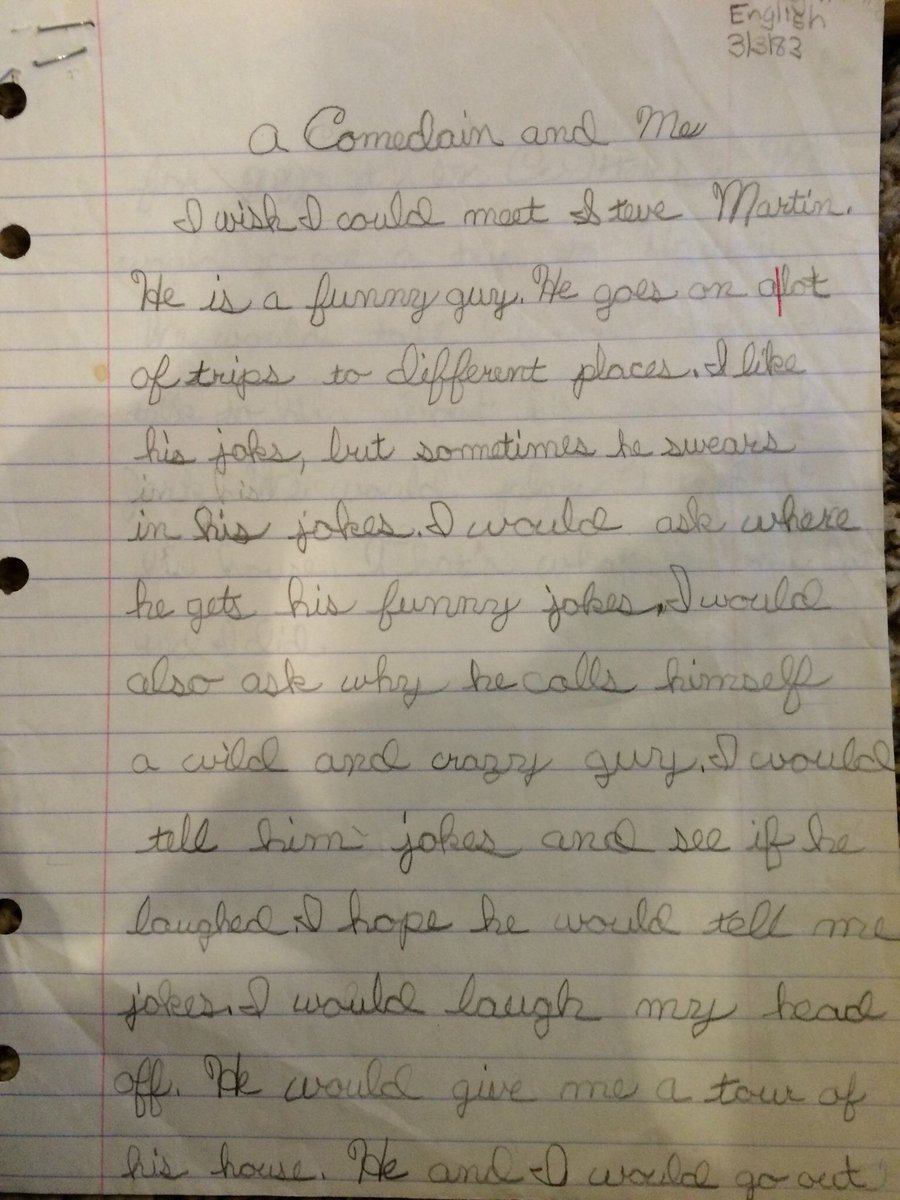 English
3/3/83
A Comedain and Me
I wish I could meet Steve Martin.
He is a funny guy. He goes on a|lot
of trips to different places. I like
his joks, but sometimes he swears
in his jokes. I would ask where
he gets his funny jokes. I would
also ask why he calls himself
a wild and crazy guy. I would
tell him jokes and see if he
laughed. I hope he would tell me
jokes. I would laugh my head
off. He would give me a tour of
his house. He and I would go out